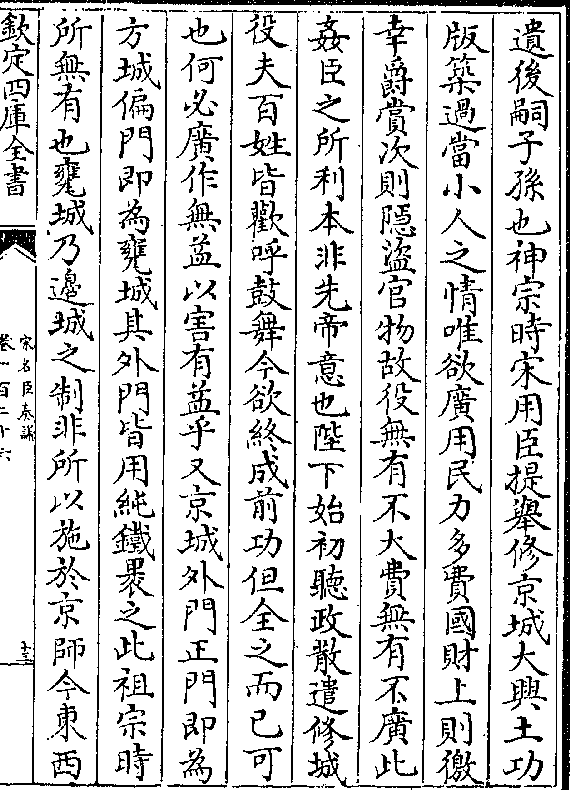 遺後嗣子孫也神宗時宋用臣提舉修京城大興土功
版築過當小人之情唯欲廣用民力多費國財上則徼
幸爵賞次則隠盜官物故役無有不大費無有不廣此
姦臣之所利本非先帝意也陛下始初聽政散遣修城
役夫百姓皆歡呼鼓舞今欲終成前功但全之而已可
也何必廣作無益以害有益乎又京城外門正門即為
方城偏門即為甕城其外門皆用純鐵褁之此祖宗時
所無有也甕城乃邊城之制非所以施於京師今東西
欽定四庫全書
宋名臣奏議
卷一百二十六